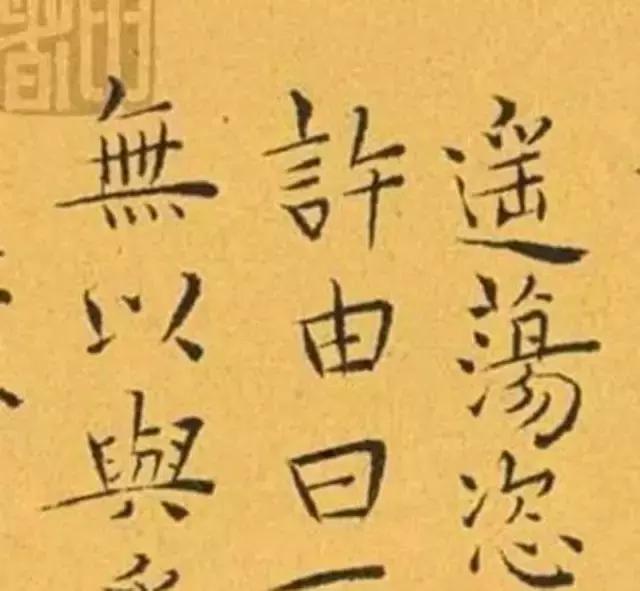 遥蕩恣
許由曰
無以與